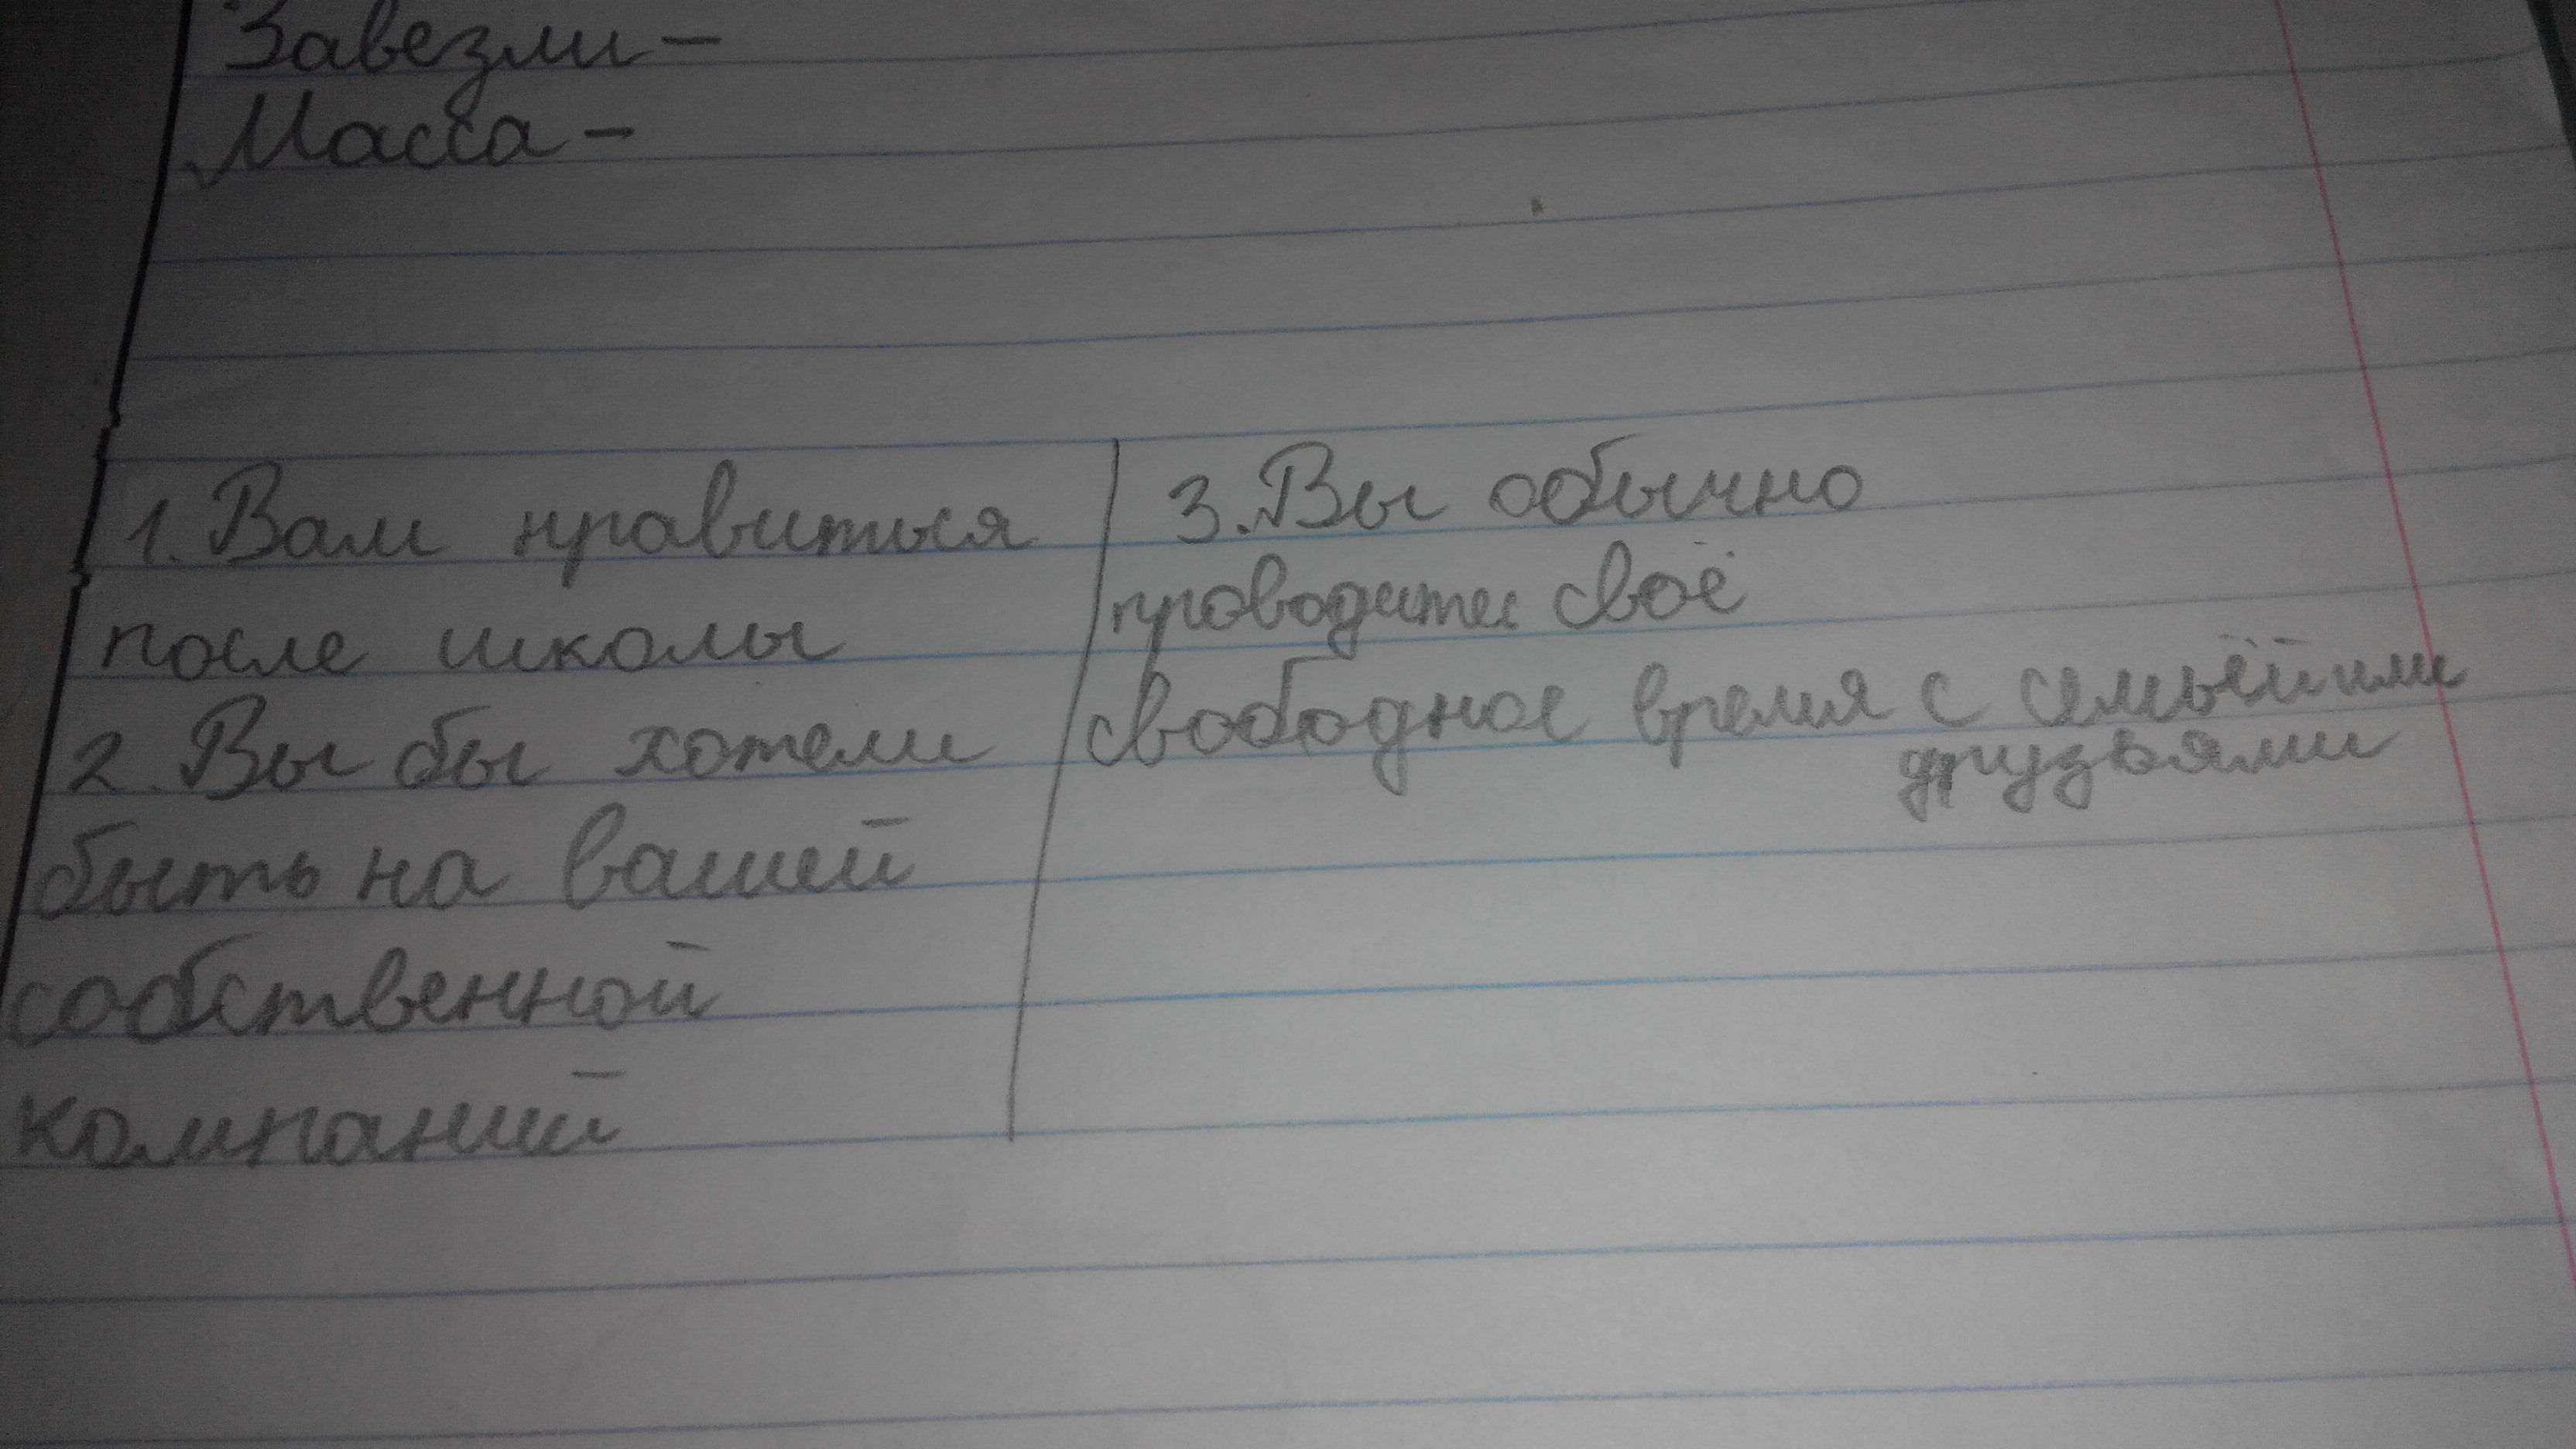 Завезли -
Масса -
1. Вам нравиться
после школы
2. Вы бы хотели
быть на вашей
собственной
компаний
3. Вы обычно
проводитес своё
свободное время с семьёй или
друзьями